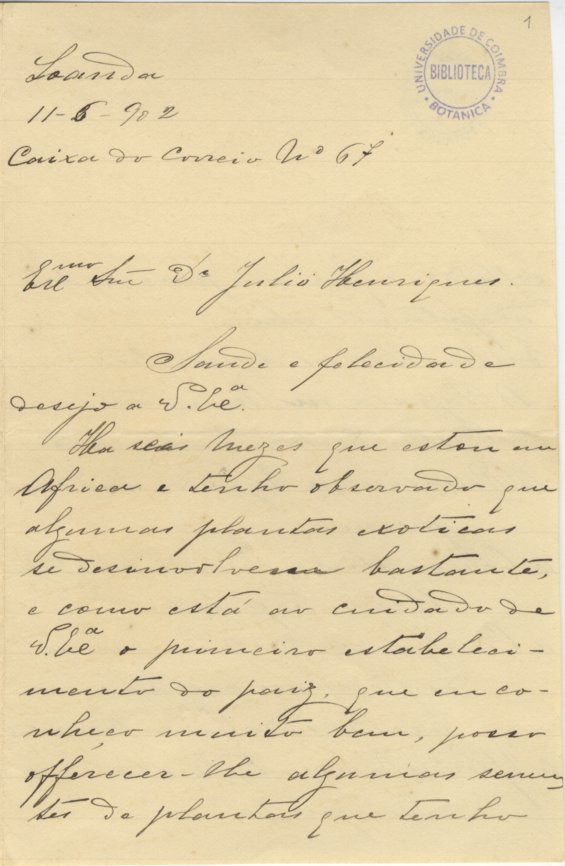 1
UNIVERSIDADE DE COIMBRA
BIBLIOTECA
BOTANICA
Loanda
11-6-902
Caixa do Correio Nº 67
Exmo Snr Dr Julio Henriques.
Saude e felecidade
desejo a V. Exª.
Ha seis mezes que estou em
Africa e tenho observado que
algumas plantas exoticas
se desinvolvem bastante,
e como está ao cuidado de
V. Exª o primeiro estabeleci-
mento do paiz, que eu co-
nheço muito bem, posso
offerecer-lhe algumas semen
tes de plantas que tenho